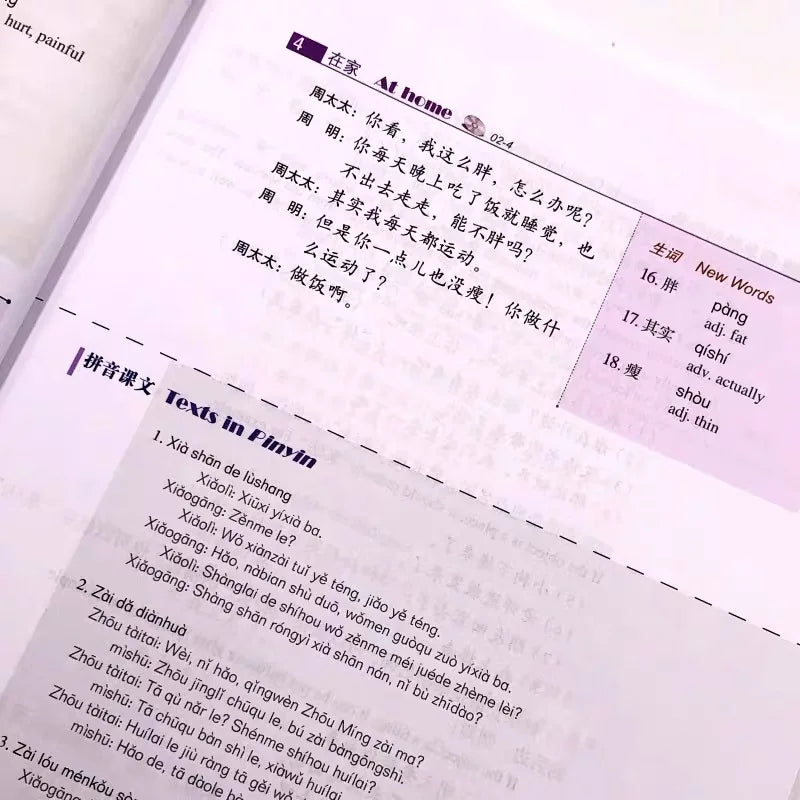 hurt, painful
4 在家 At home 02-4
周太太：你看，我这么胖，怎么办呢？
周 明：你每天晚上吃了饭就睡觉，也
不出去走走，能不胖吗？
周太太：其实我每天都运动。
周 明：但是你一点儿也没瘦！你做什
么运动了？
周太太：做饭啊。
生词 New Words
16. 胖 pàng
adj. fat
17. 其实 qíshí
adv. actually
18. 瘦 shòu
adj. thin
拼音课文 Texts in Pinyin
1. Xià shān de lùshang
Xiǎolì: Xiūxi yíxià ba.
Xiǎogāng: Zěnme le?
Xiǎolì: Wǒ xiànzài tuǐ yě téng, jiǎo yě téng.
Xiǎogāng: Hǎo, nàbian shù duō, wǒmen guòqu zuò yíxià ba.
Xiǎolì: Shànglai de shíhou wǒ zěnme méi juéde zhème lèi?
Xiǎogāng: Shàng shān róngyì xià shān nán, nǐ bù zhīdào?
2. Zài dǎ diànhuà
Zhōu tàitai: Wèi, nǐ hǎo, qǐngwèn Zhōu Míng zài ma?
mìshū: Zhōu jīnglǐ chūqu le, bú zài bàngōngshì.
Zhōu tàitai: Tā qù nǎr le? Shénme shíhou huílai?
mìshū: Tā chūqu bàn shì le, xiàwǔ huílai.
Zhōu tàitai: Huílai le jiù ràng tā gěi wǒ
mìshū: Hǎo de, tā dàole
3. Zài lóu ménkǒu
Xiǎogāng: